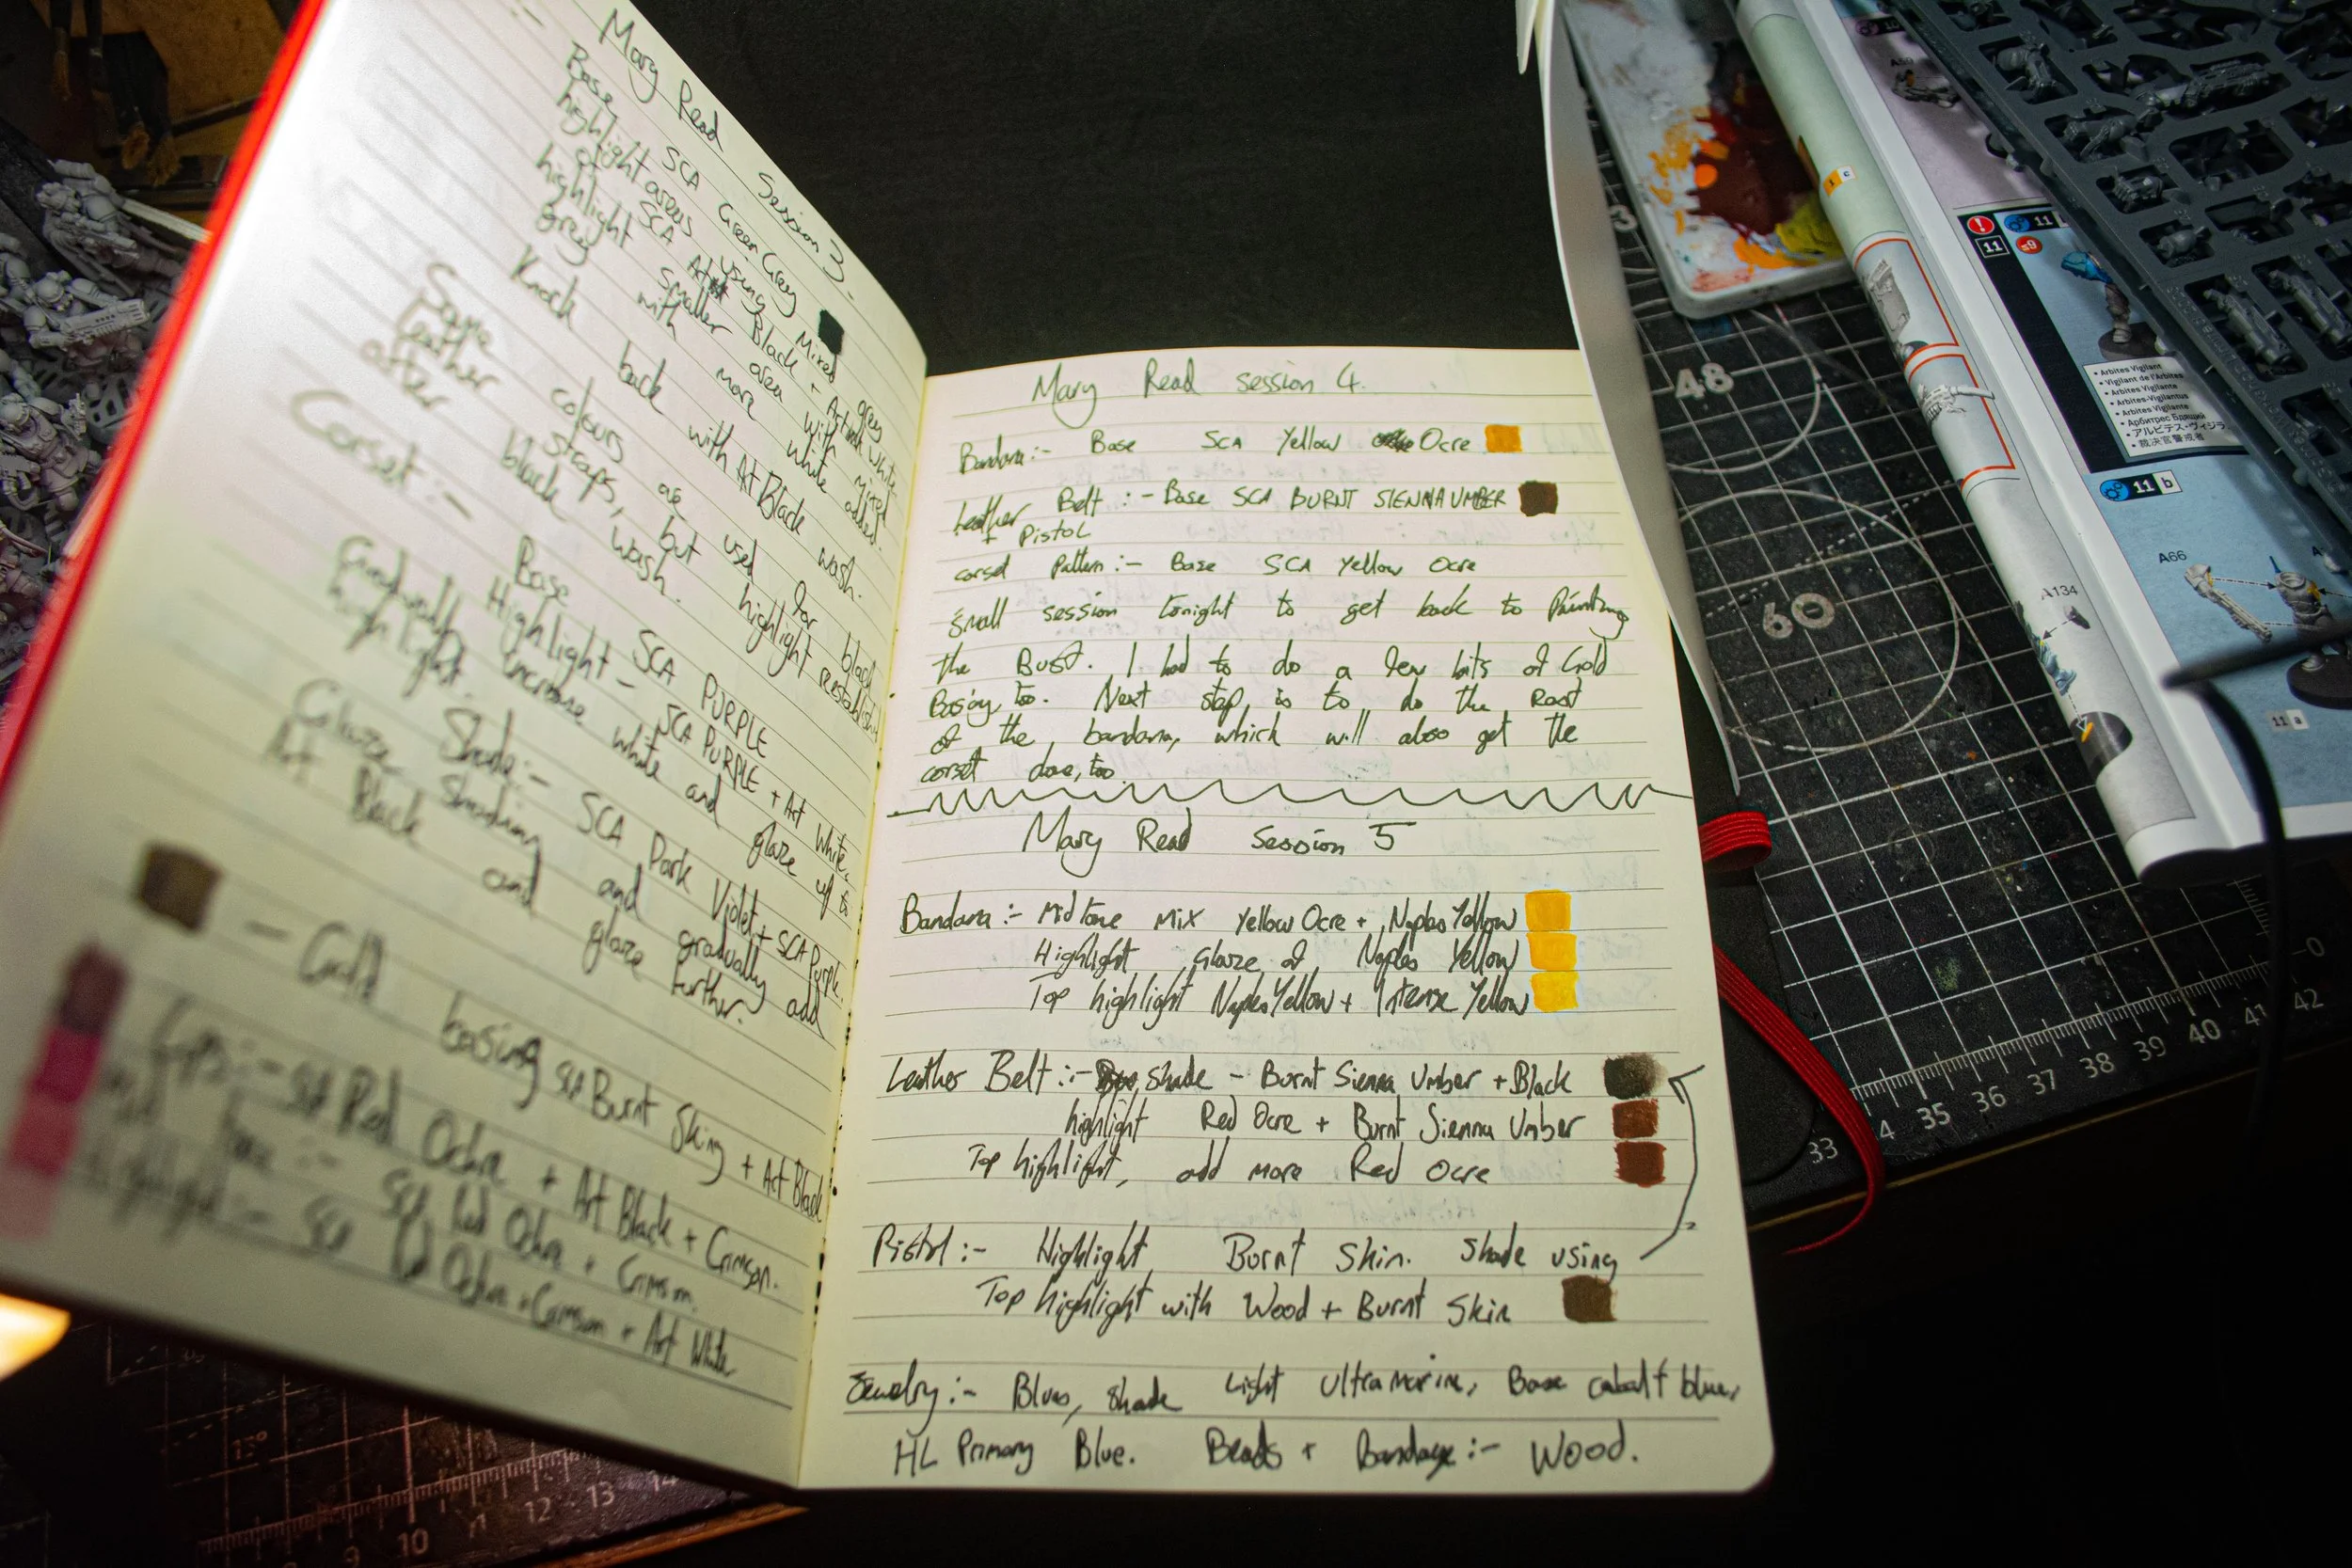 Mary Read Session 3.
:-
Base SCA Green Grey
highlight areas using Mixed grey
of SCA Art Black + Art White.
highlight smaller area with mixed
grey with more white added.
Knock back with Art Black wash.
Same colours as used for black
leather straps, but highlight
after black wash.
Corset :-
Base SCA PURPLE
Highlight - SCA PURPLE + Art White.
Gradually increase white and glaze up to
highlight.
Shade:- SCA Dark Violet + SCA Purple.
Glaze shading and gradually add
Art Black and glaze further.
- Gold basing SCA Burnt Skin + Art Black
Lips:- SCA Red Ochre + Art Black + Crimson.
:- SCA Red Ochre + Crimson.
Highlight:- SCA Red Ochre + Crimson + Art White
Mary Read session 4.
Bandana:- Base SCA Yellow Ocre
Leather Belt :- Base SCA BURNT SIENNA UMBER
+ Pistol
corset Pattern:- Base SCA Yellow Ocre
Small session tonight to get back to Painting
the Bust. I had to do a few bits of Gold
Basing too. Next step, is to do the Rest
of the bandana, which will also get the
corset done, too
Mary Read Session 5
Bandana:- Midtone Mix Yellow Ocre + Naples Yellow
Highlight Glaze of Naples Yellow
Top highlight Naples Yellow + Intense Yellow
Leather Belt:- Shade - Burnt Sienna Umber + Black
highlight Red Ocre + Burnt Sienna Umber
Top highlight, add more Red Ocre
Pistol:- Highlight Burnt Skin. Shade using
Top highlight with Wood + Burnt Skin
Jewelry:- Blues, shade Light Ultramarine, Base cobalt blue,
HL Primary Blue. Beads + Bandage:- Wood.
48
60
33
4 35 36 37 38 39 40 41 42
0
9 10 11 12 13 14
1 c
11
11
s9
• Arbites Vigilant
• Vigilant de l'Arbites
• Arbites Vigilante
• Arbites-Vigilantus
• Arbites Vigilante
• アルビテス・ヴィジラ
• 裁決官警戒者
11 b
A66
A134
11 a